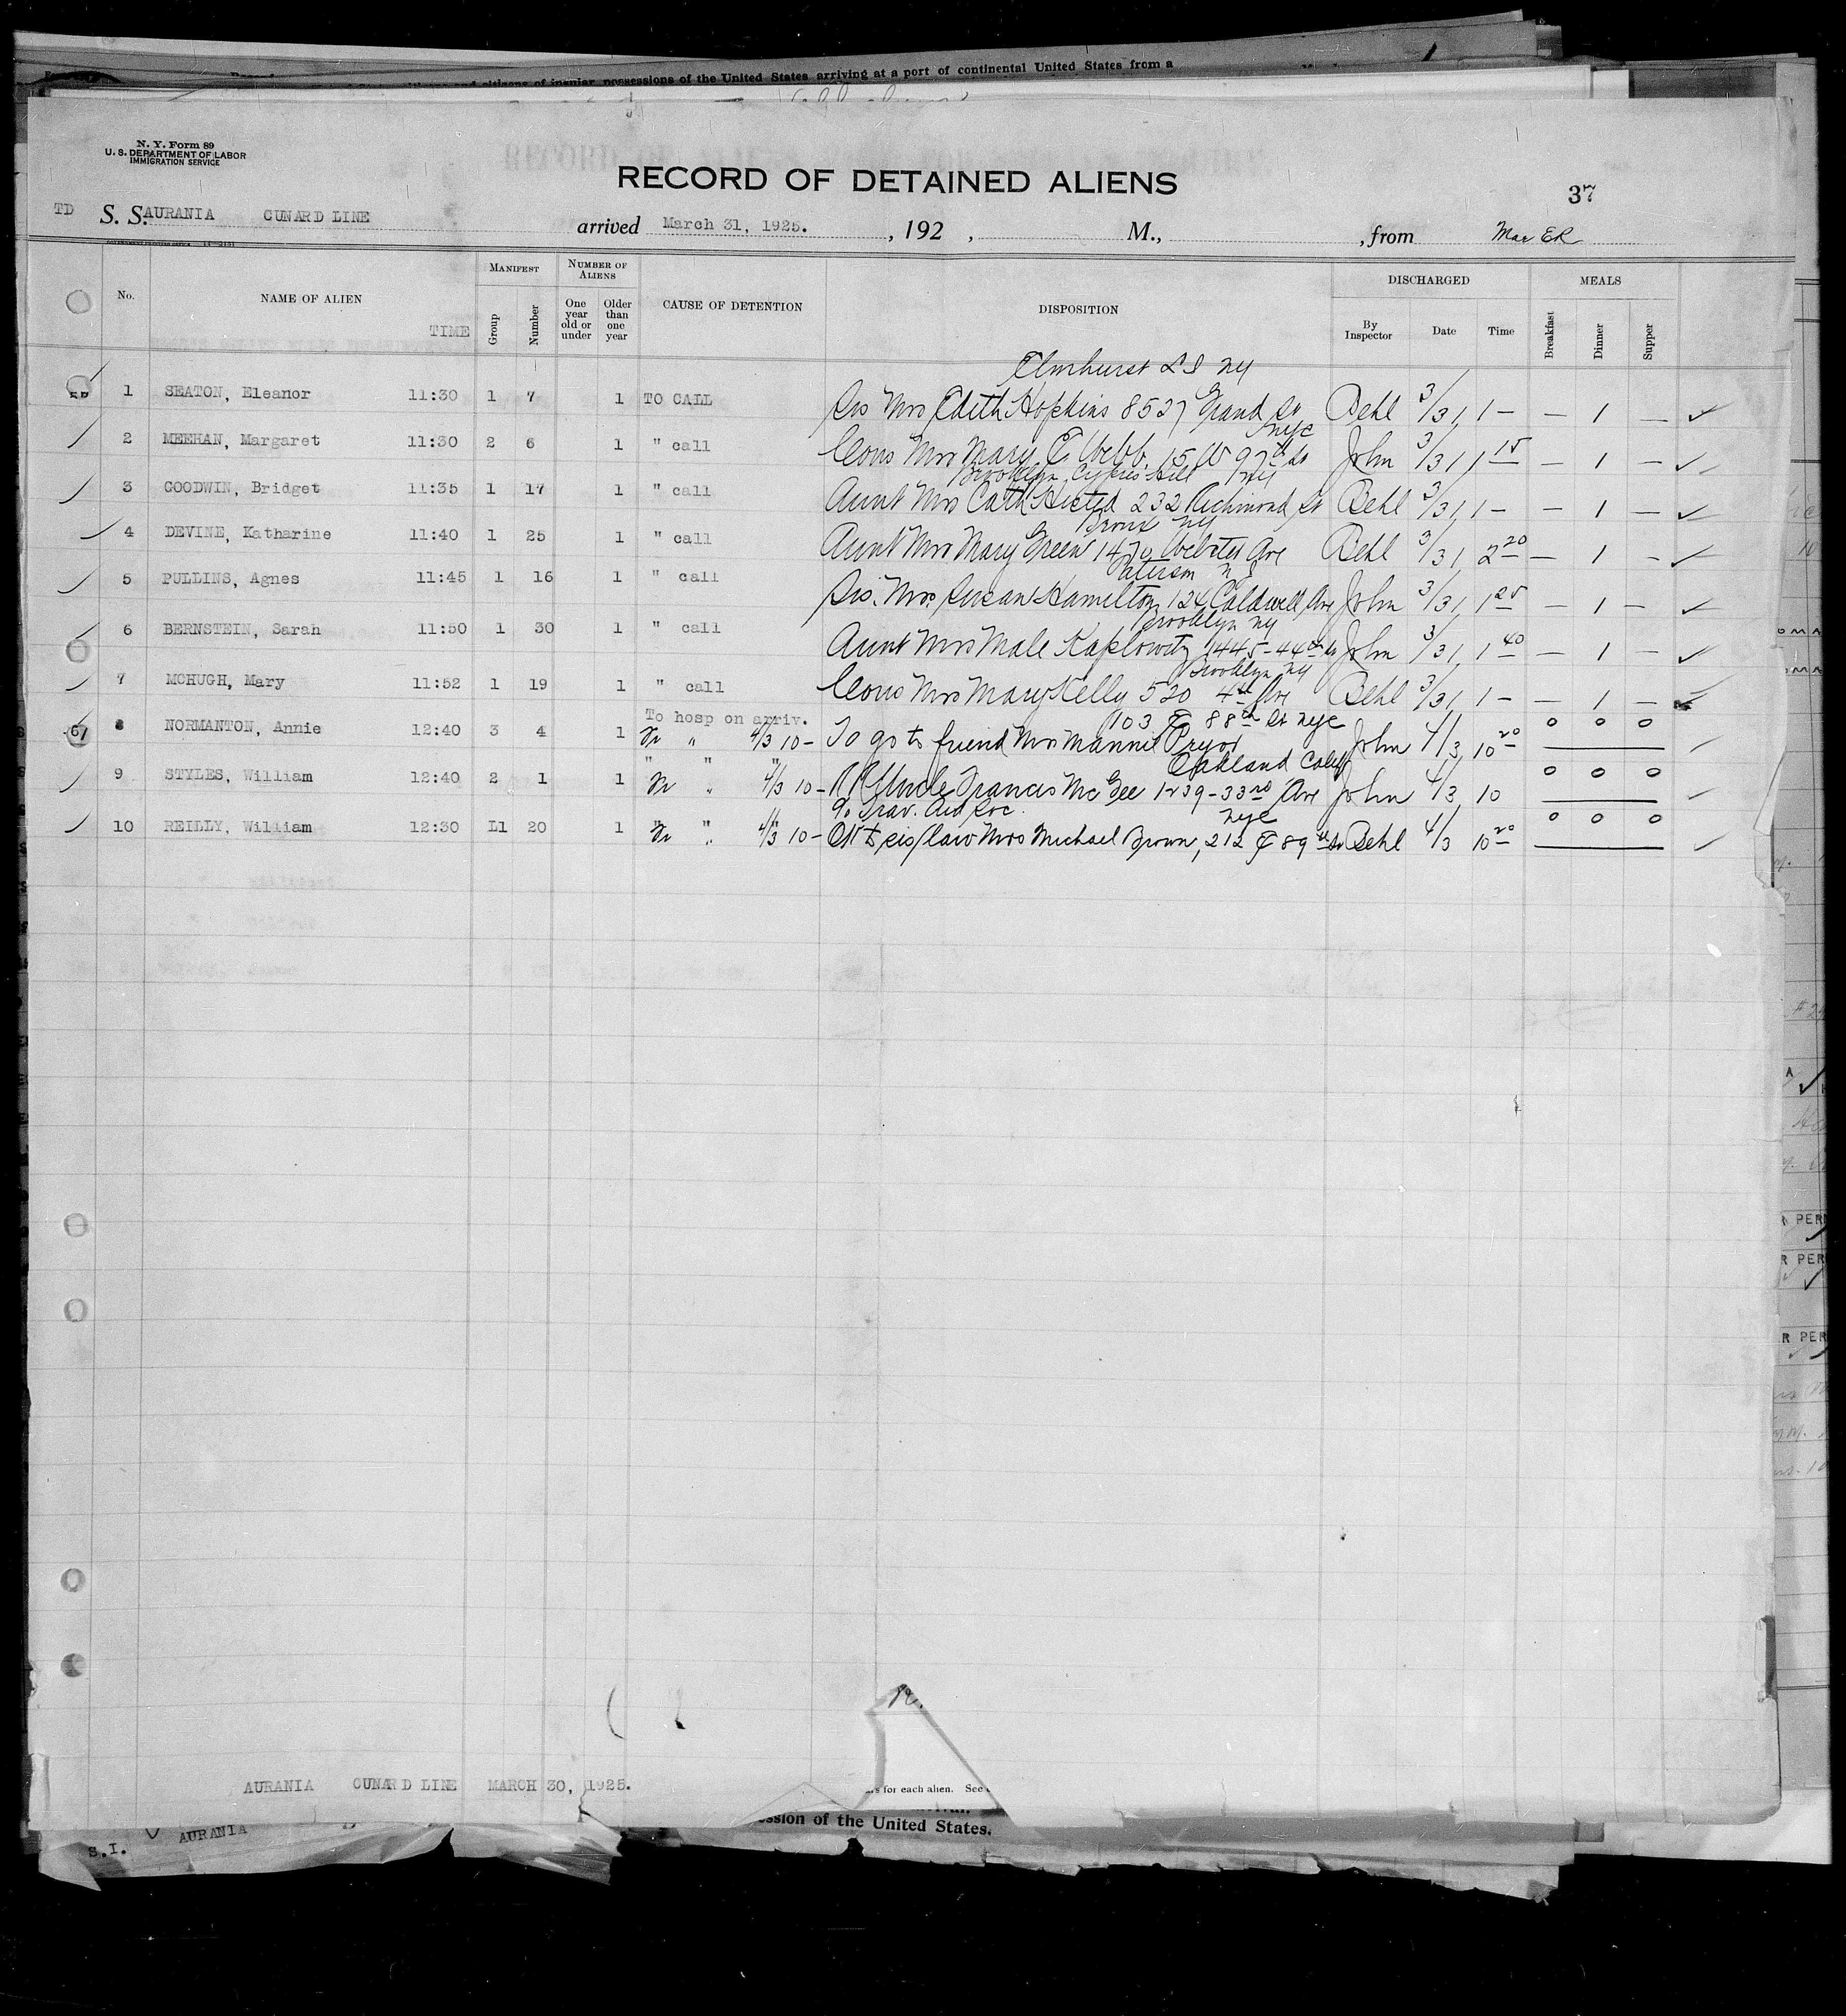 citizens of insular possessions of the United States arriving at a port of continental United States from a
N. Y. Form 89
U. S. DEPARTMENT OF LABOR
IMMIGRATION SERVICE
RECORD OF DETAINED ALIENS
37
TD S. S. AURANIA CUNARD LINE arrived March 31, 1925. , 192 , M., , from Mar ER
No. NAME OF ALIEN TIME MANIFEST Group Number NUMBER OF ALIENS One year old or under Older than one year CAUSE OF DETENTION DISPOSITION DISCHARGED By Inspector Date Time MEALS Breakfast Dinner Supper
Elmhurst L I NY
1 SEATON, Eleanor 11:30 1 7 1 TO CALL Sis Mrs Edith Hopkins 8527 Grand St Behl 3/31 1 — — 1 — ✓
NYC
2 MEEHAN, Margaret 11:30 2 6 1 " call Cous Mrs Mary E Webb 15 W 97th St John 3/31 1 15 — 1 — ✓
Brooklyn Cypres Hill NY
3 GOODWIN, Bridget 11:35 1 17 1 " call Aunt Mrs Cath Histed 232 Richmond St Behl 3/31 1 — — 1 — ✓
Bronx NY
4 DEVINE, Katharine 11:40 1 25 1 " call Aunt Mrs Mary Green 1470 Webster Ave Behl 3/31 2 20 — 1 — ✓
Paterson N J
5 PULLINS, Agnes 11:45 1 16 1 " call Sis. Mrs. Susan Hamilton 124 Caldwell Ave John 3/31 1 25 — 1 — ✓
Brooklyn NY
6 BERNSTEIN, Sarah 11:50 1 30 1 " call Aunt Mrs Male Kaplowitz 1445-44th St John 3/31 1 40 — 1 — ✓
Brooklyn NY
7 MCHUGH, Mary 11:52 1 19 1 " call Cous Mrs Mary Kelly 520 4th Ave Behl 3/31 1 — — 1 — ✓
To hosp on arriv. 103 E 88th St NYC
8 NORMANTON, Annie 12:40 3 4 1 Fr " 4/3 10- To go to friend Mrs Mannie Pryor John 4/3 10 20 0 0 0 ✓
" " " Oakland Calif
9 STYLES, William 12:40 2 1 1 Fr " 4/3 10- RR Uncle Francis McGee 1239-33rd Ave John 4/3 10 0 0 0 ✓
" " " % Trav. Aid Soc. NYC
10 REILLY, William 12:30 L1 20 1 Fr " 4/3 10- sis/law Mrs Michael Brown, 212 E 89th St Behl 4/3 10 20 0 0 0 ✓
AURANIA CUNARD LINE MARCH 30, 1925.
for each alien. See
of the United States.
S.I. AURANIA